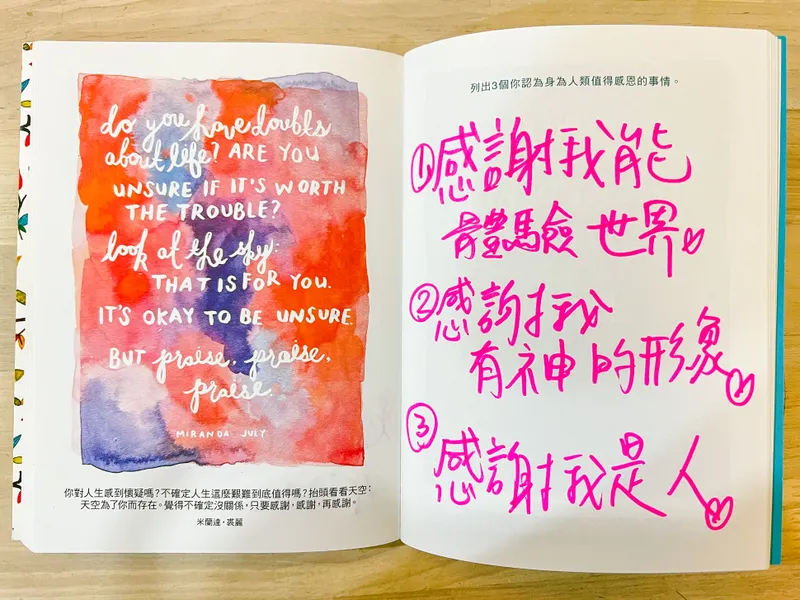 do you have doubts
about life? ARE YOU
UNSURE IF IT'S WORTH
THE TROUBLE?
look at the sky:
THAT IS FOR YOU.
IT'S OKAY TO BE UNSURE.
BUT praise, praise,
praise.
MIRANDA JULY
你對人生感到懷疑嗎?不確定人生這麼艱難到底值得嗎?抬頭看看天空:
天空為了你而存在。覺得不確定沒關係,只要感謝,感謝,再感謝。
米蘭達·裘麗
列出3個你認為身為人類值得感恩的事情。
①感謝我能
體驗世界
②感謝我
有神的形象
③感謝我是人